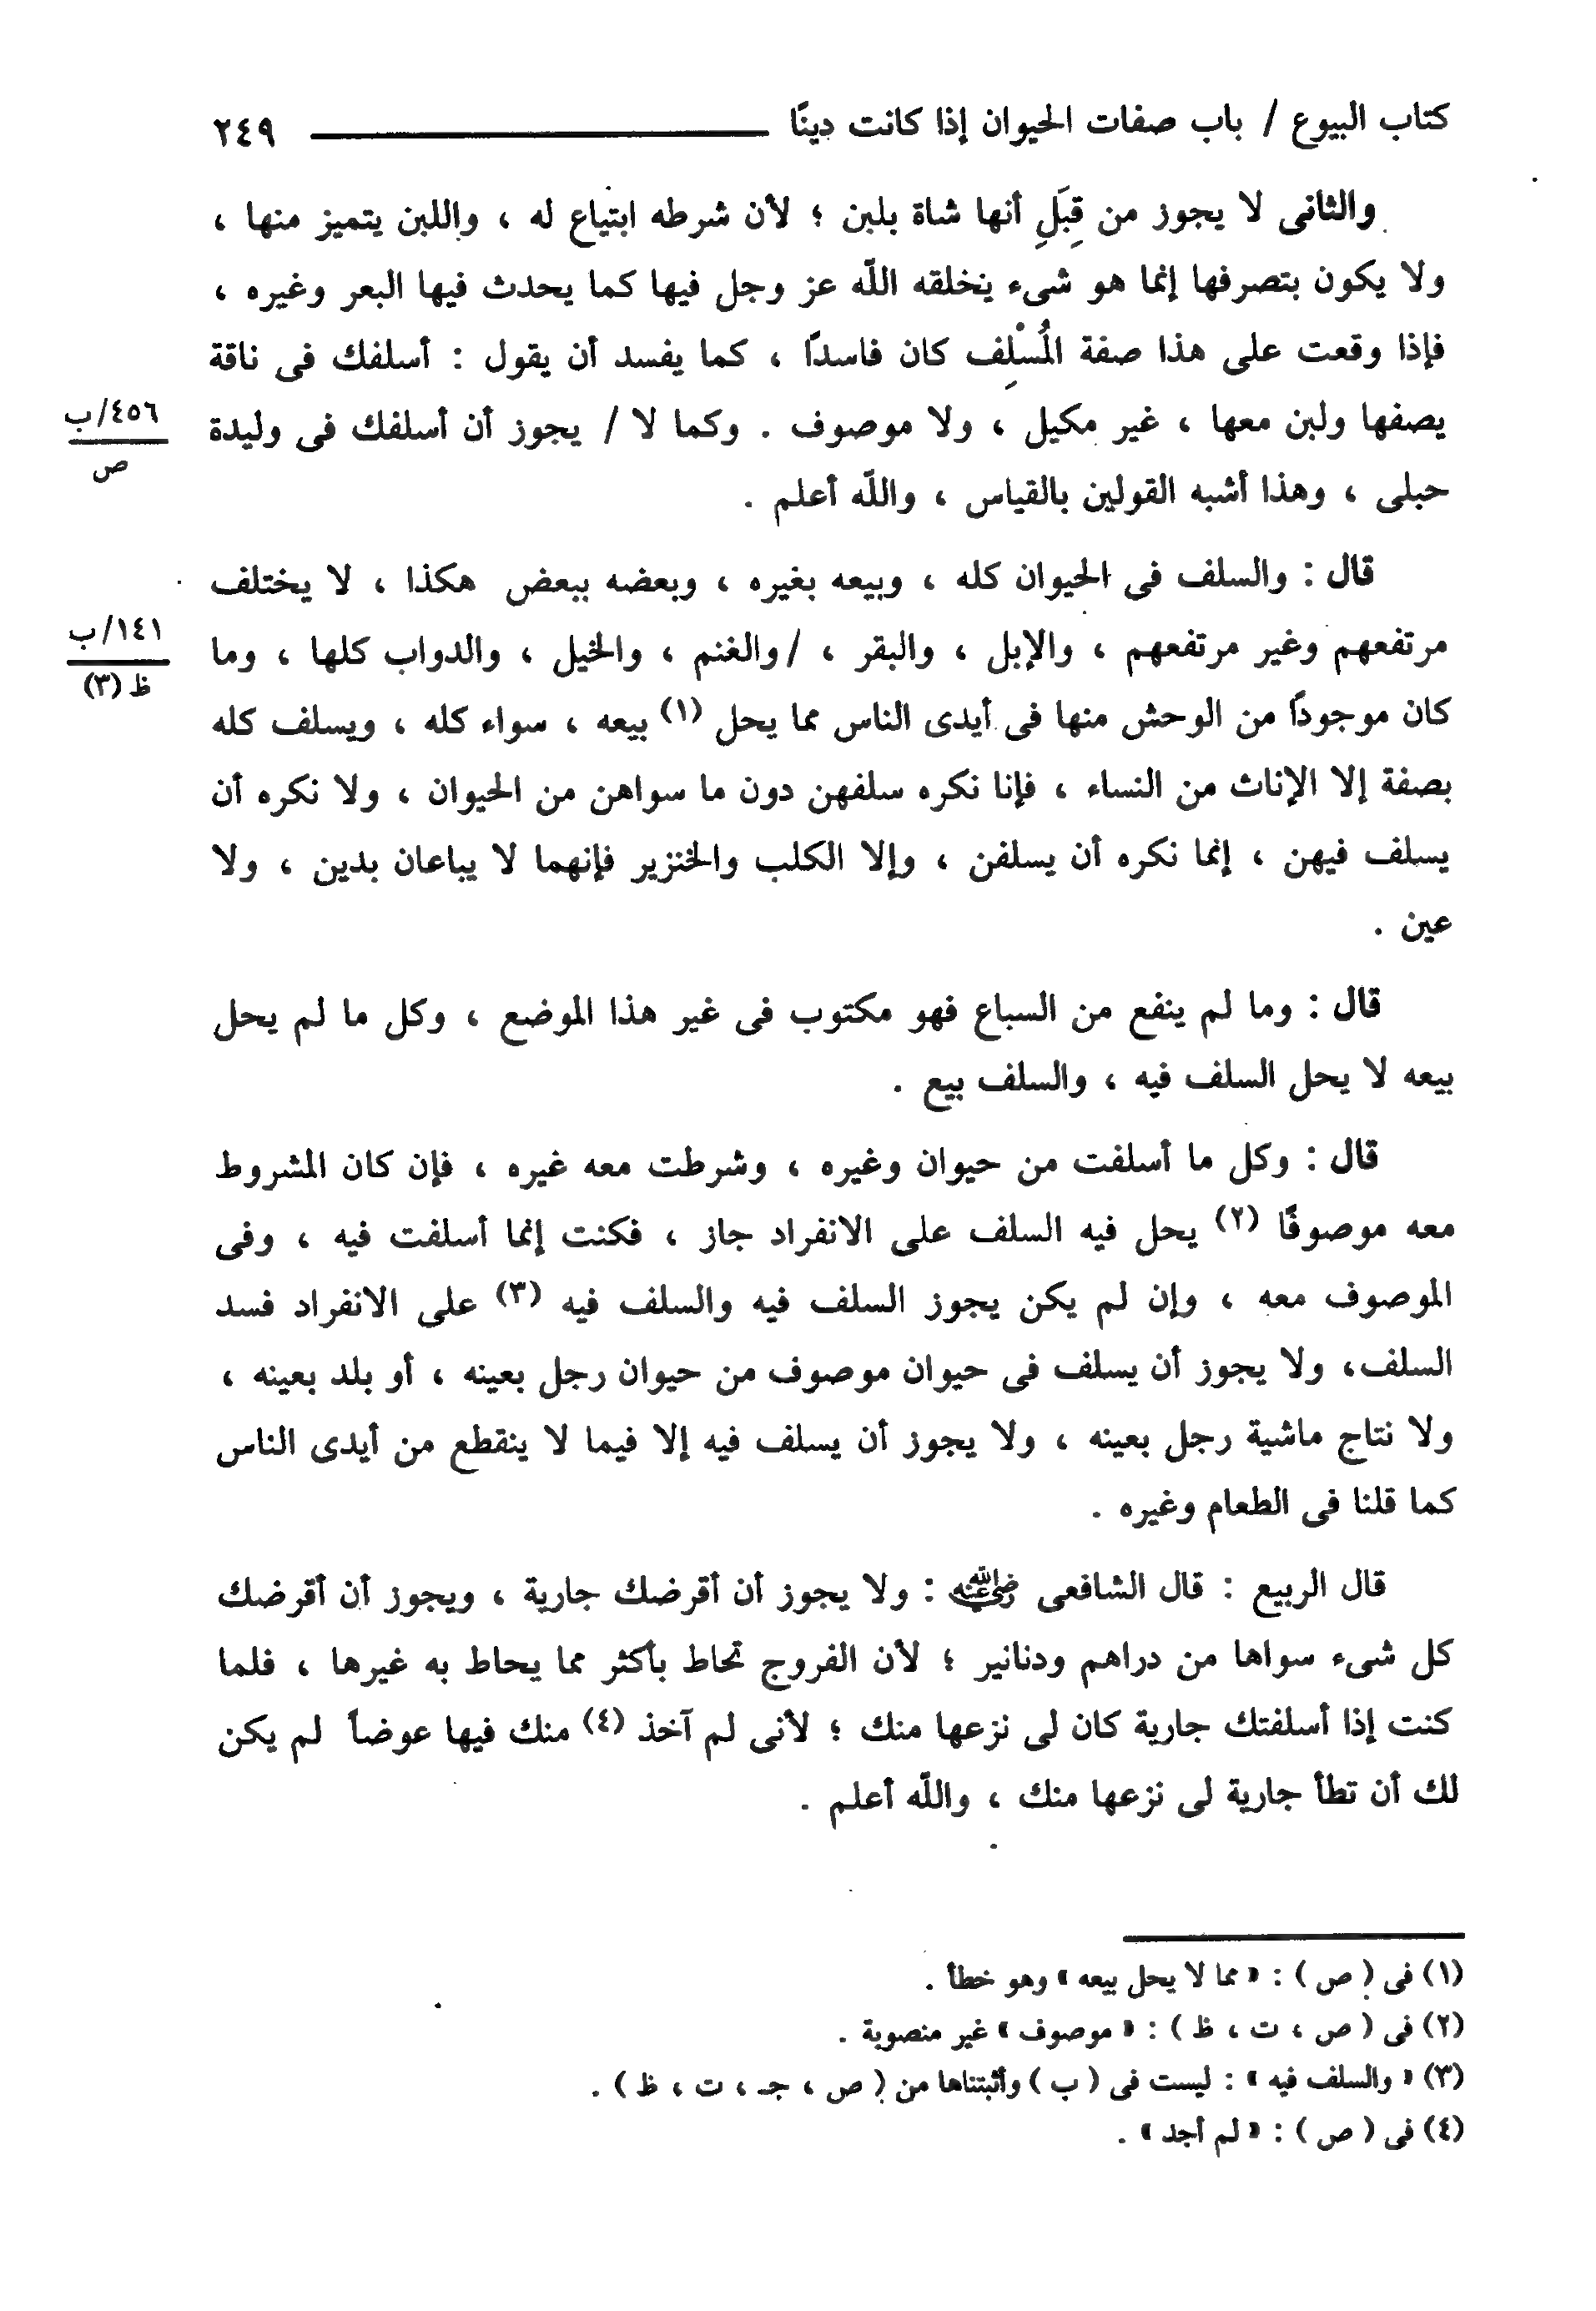 كتاب البيوع / باب صفات الحيوان إذا كانت دينًا ٢٤٩
والثانى لا يجوز من قِبَلِ أنها شاة بلبن ؛ لأن شرطه ابتياع له ، واللبن يتميز منها ،
ولا يكون بتصرفها إنما هو شىء يخلقه اللّه عز وجل فيها كما يحدث فيها البعر وغيره ،
فإذا وقعت على هذا صفة المُسْلِف كان فاسدًا ، كما يفسد أن يقول : أسلفك فى ناقة
يصفها ولبن معها ، غير مكيل ، ولا موصوف . وكما لا / يجوز أن أسلفك فى وليدة
٤٥٦/ب
ص
حبلى ، وهذا أشبه القولين بالقياس ، واللّه أعلم .
قال : والسلف فى الحيوان كله ، وبيعه بغيره ، وبعضه ببعض هكذا ، لا يختلف
مرتفعهم وغير مرتفعهم ، والإبل ، والبقر ، /والغنم ، والخيل ، والدواب كلها ، وما
١٤١/ب
ظ (٣)
كان موجودًا من الوحش منها فى أيدى الناس مما يحل (١) بيعه ، سواء كله ، ويسلف كله
بصفة إلا الإناث من النساء ، فإنا نكره سلفهن دون ما سواهن من الحيوان ، ولا نكره أن
يسلف فيهن ، إنما نكره أن يسلفن ، وإلا الكلب والخنزير فإنهما لا يباعان بدين ، ولا
عين .
قال : وما لم ينفع من السباع فهو مكتوب فى غير هذا الموضع ، وكل ما لم يحل
بيعه لا يحل السلف فيه ، والسلف بيع .
قال : وكل ما أسلفت من حيوان وغيره ، وشرطت معه غيره ، فإن كان المشروط
معه موصوفًا (٢) يحل فيه السلف على الانفراد جاز ، فكنت إنما أسلفت فيه ، وفى
الموصوف معه ، وإن لم يكن يجوز السلف فيه والسلف فيه (٣) على الانفراد فسد
السلف، ولا يجوز أن يسلف فى حيوان موصوف من حيوان رجل بعينه ، أو بلد بعينه ،
ولا نتاج ماشية رجل بعينه ، ولا يجوز أن يسلف فيه إلا فيما لا ينقطع من أيدى الناس
كما قلنا فى الطعام وغيره .
قال الربيع : قال الشافعى رضي الله عنه : ولا يجوز أن أقرضك جارية ، ويجوز أن أقرضك
كل شىء سواها من دراهم ودنانير ؛ لأن الفروج تحاط بأكثر مما يحاط به غيرها ، فلما
كنت إذا أسلفتك جارية كان لى نزعها منك ؛ لأنى لم آخذ (٤) منك فيها عوضاً لم يكن
لك أن تطأ جارية لى نزعها منك ، واللّه أعلم .
(١) فى ( ص ) : « مما لا يحل بيعه » وهو خطأ .
(٢) فى ( ص ، ت ، ظ ) : « موصوف » غير منصوبة .
(٣) « والسلف فيه » : ليست فى ( ب ) وأثبتناها من ( ص ، جـ ، ت ، ظ ) .
(٤) فى ( ص ) : « لم أجد » .